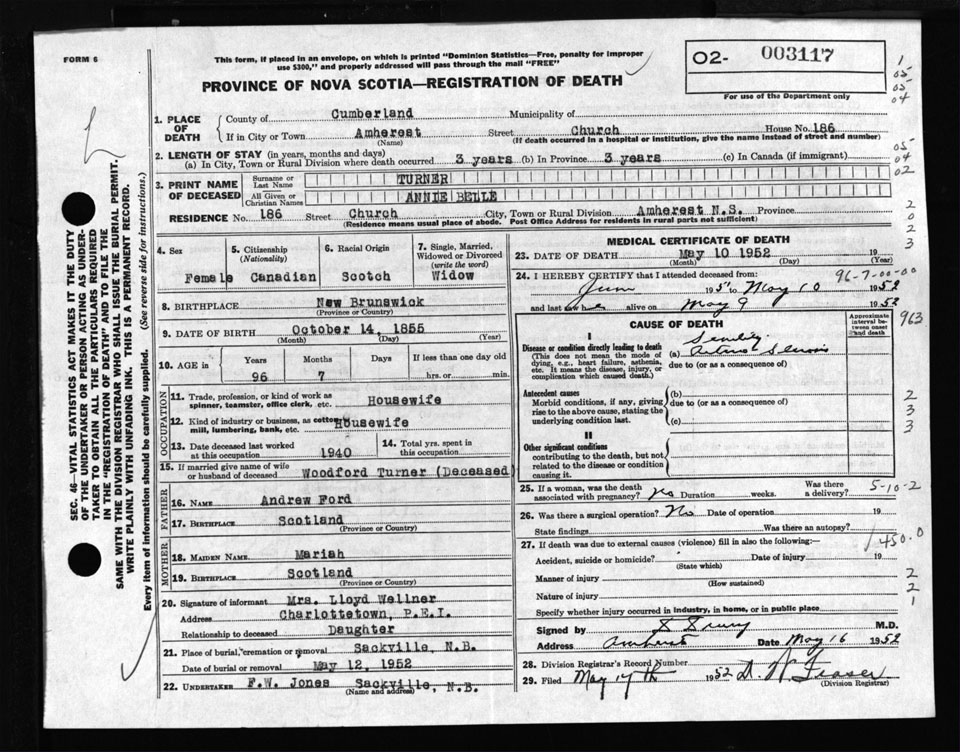 FORM 6
This form, if placed in an envelope, on which is printed "Dominion Statistics—Free, penalty for improper
use $300," and properly addressed will pass through the mail "FREE"
PROVINCE OF NOVA SCOTIA—REGISTRATION OF DEATH
02- 003117
For use of the Department only
1. PLACE OF DEATH
County of Cumberland Municipality of
If in City or Town Amherest Street Church House No. 186
(Name) (If death occurred in a hospital or institution, give the name instead of street and number)
2. LENGTH OF STAY (in years, months and days)
(a) In City, Town or Rural Division where death occurred 3 years (b) In Province 3 years (c) In Canada (if immigrant)
3. PRINT NAME OF DECEASED
Surname or Last Name TURNER
All Given or Christian Names ANNIE BELLE
RESIDENCE No. 186 Street Church City, Town or Rural Division Amherest N.S. Province
(Residence means usual place of abode. Post Office Address for residents in rural parts not sufficient)
4. Sex Female
5. Citizenship (Nationality) Canadian
6. Racial Origin Scotch
7. Single, Married, Widowed or Divorced (write the word) Widow
8. BIRTHPLACE New Brunswick
(Province or Country)
9. DATE OF BIRTH October 14, 1855
(Month) (Day) (Year)
10. AGE in Years Months Days If less than one day old
96 7 hrs. or min.
OCCUPATION
11. Trade, profession, or kind of work as
spinner, teamster, office clerk, etc. Housewife
12. Kind of industry or business, as cotton
mill, lumbering, bank, etc. Housewife
13. Date deceased last worked
at this occupation 1940
14. Total yrs. spent in
this occupation
15. If married give name of wife
or husband of deceased Woodford Turner (Deceased)
FATHER
16. NAME Andrew Ford
17. BIRTHPLACE Scotland
(Province or Country)
MOTHER
18. MAIDEN NAME Mariah
19. BIRTHPLACE Scotland
(Province or Country)
20. Signature of informant Mrs. Lloyd Wellner
Address Charlottetown, P.E.I.
Relationship to deceased Daughter
21. Place of burial, cremation or removal Sackville, N.B.
Date of burial or removal May 12, 1952
22. UNDERTAKER F.W. Jones Sackville, N.B.
(Name and address)
MEDICAL CERTIFICATE OF DEATH
23. DATE OF DEATH May 10 1952 19
(Month) (Day) (Year)
24. I HEREBY CERTIFY that I attended deceased from: 96-7-00-00
1951 to May 10 1952
and last saw h e alive on May 9 1952
CAUSE OF DEATH
Approximate interval between onset and death
963
I
Disease or condition directly leading to death
(This does not mean the mode of
dying, e.g., heart failure, asthenia,
etc. It means the disease, injury, or
complication which caused death.)
(a) Senility
due to (or as a consequence of)
Antecedent causes
Morbid conditions, if any, giving
rise to the above cause, stating the
underlying condition last.
(b)
due to (or as a consequence of)
(c)
II
Other significant conditions
contributing to the death, but not
related to the disease or condition
causing it.
25. If a woman, was the death
associated with pregnancy? No Duration weeks. Was there a delivery? 5-10-2
26. Was there a surgical operation? No Date of operation 19
State findings Was there an autopsy?
27. If death was due to external causes (violence) fill in also the following:— 450.0
Accident, suicide or homicide? Date of injury 19
(State which)
Manner of injury
(How sustained)
Nature of injury
Specify whether injury occurred in industry, in home, or in public place
Signed by M.D.
Address Amherst Date May 16 1952
28. Division Registrar's Record Number
29. Filed May 17th 1952
(Division Registrar)
SEC. 46—VITAL STATISTICS ACT MAKES IT THE DUTY
OF THE UNDERTAKER OR PERSON ACTING AS UNDER-
TAKER TO OBTAIN ALL THE PARTICULARS REQUIRED
IN THE "REGISTRATION OF DEATH" AND TO FILE THE
SAME WITH THE DIVISION REGISTRAR WHO SHALL ISSUE THE BURIAL PERMIT.
WRITE PLAINLY WITH UNFADING INK. THIS IS A PERMANENT RECORD.
Every item of information should be carefully supplied. (See reverse side for instructions.)
1
05-
05
04
05-
04
02
2
0
2
2
3
2
3
3
2
2
1